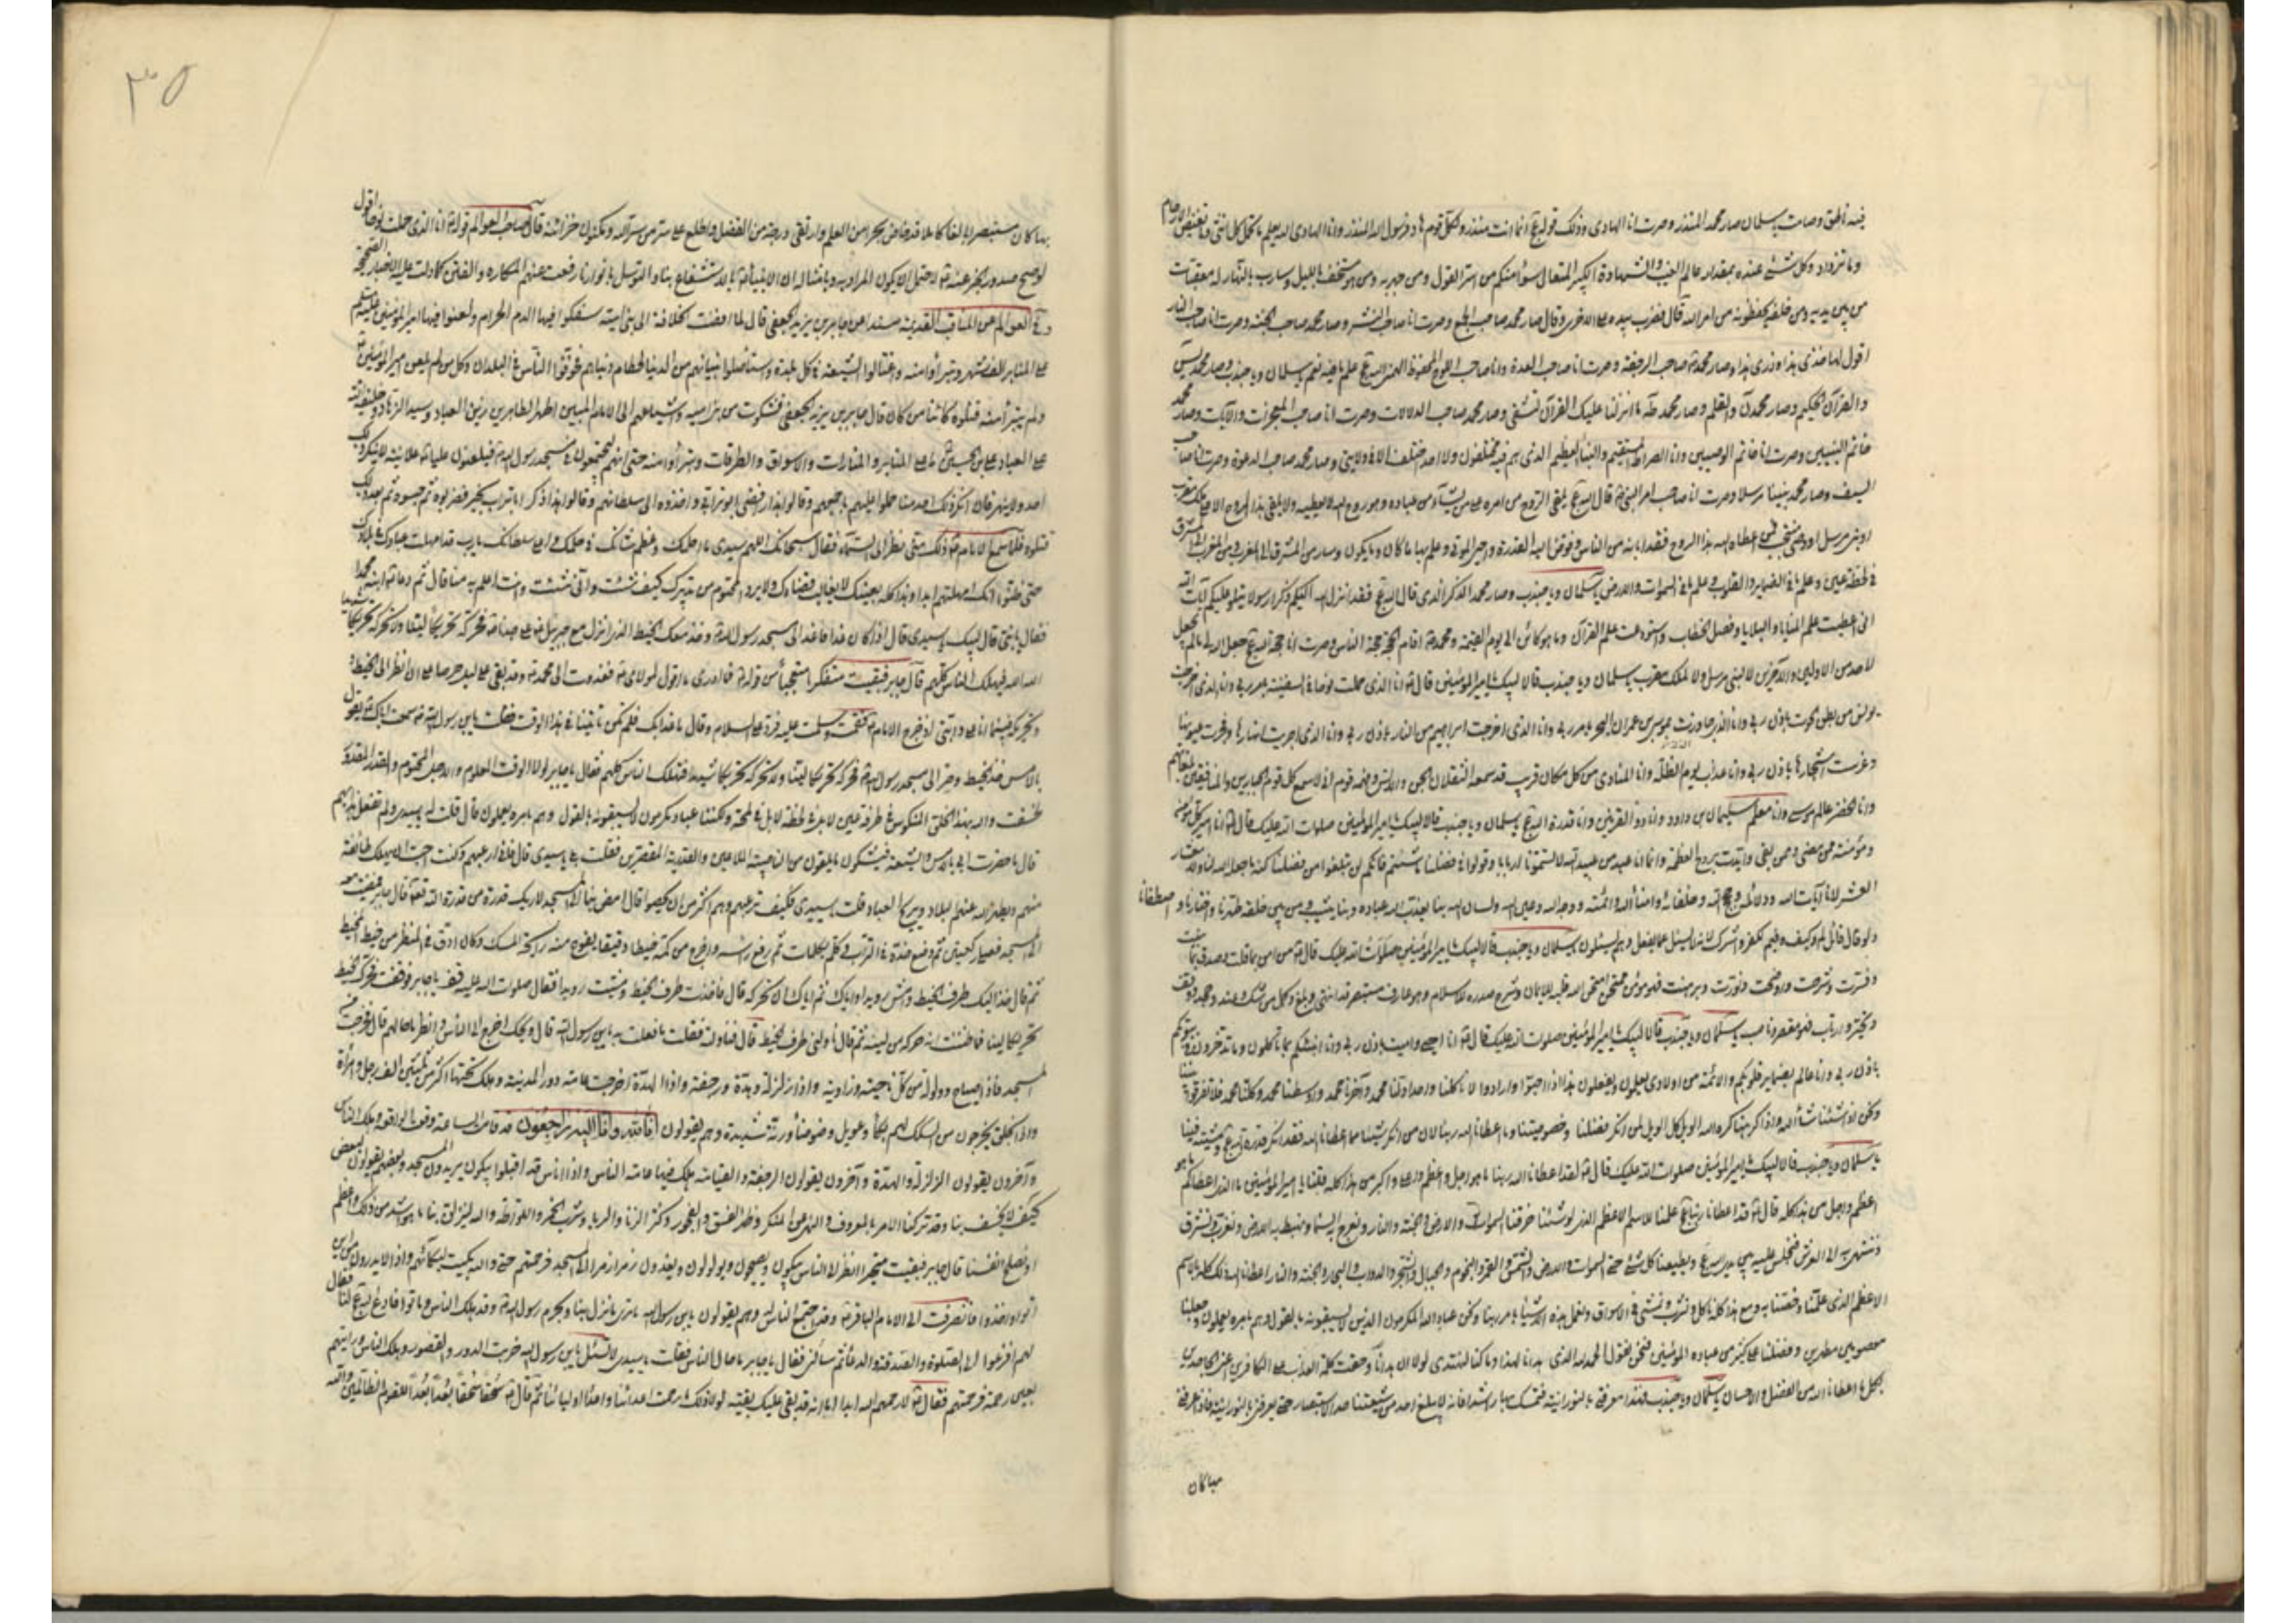 فيه ناطق وصامت يا سلمان صار محمد المنذر وصرت انا الهادى وذلك قوله انما انت منذر ولكل قوم هاد فرسول الله المنذر وانا الهادى الله يعلم ما تحمل كل انثى وما تغيض الارحام
وما تزداد وكل شئ عنده بمقدار عالم الغيب والشهادة الكبير المتعال سواء منكم من اسر القول ومن جهر به ومن هو مستخف بالليل وسارب بالنهار له معقبات
من بين يديه ومن خلفه يحفظونه من امر الله قال فضرب بيده على الاخرى وقال صار محمد صاحب الجمع وصرت انا صاحب النشر وصار محمد صاحب الجنة وصرت انا صاحب النار
اقول لها خذى هذا وذرى هذا وصار محمد صاحب الرجفة وصرت انا صاحب الهدة وانا صاحب اللوح المحفوظ الهمنى الله علم ما فيه نعم يا سلمان ويا جندب وصار محمد يس
والقرآن الحكيم وصار محمد ن والقلم وصار محمد طه ما انزلنا عليك القرآن لتشقى وصار محمد صاحب الدلالات وصرت انا صاحب المعجزات والآيات وصار محمد
خاتم النبيين وصرت انا خاتم الوصيين وانا الصراط المستقيم والنبأ العظيم الذى هم فيه مختلفون ولا احد اختلف الا فى ولايتى وصار محمد صاحب الدعوة وصرت انا صاحب
السيف وصار محمد نبينا مرسلا وصرت انا صاحب امر النبى قال الله يلقى الروح من امره على من يشآء من عباده وهو روح الله لا يعطيه ولا يلقى هذا الروح الا على ملك مقرب
او نبى مرسل او وصى منتجب فمن اعطاه الله هذا الروح فقد ابانه من الناس وفوض اليه القدرة واحيى الموتى وعلم بها ما كان وما يكون وسار من المشرق الى المغرب ومن المغرب الى المشرق
فى لحظة عين وعلم ما فى الضماير والقلوب وعلم ما فى السموات والارض يا سلمان ويا جندب وصار محمد الذكر الذى قال الله قد انزل الله اليكم ذكرا رسولا يتلو عليكم آيات الله
انى اعطيت علم المنايا والبلايا وفصل الخطاب واستودعت علم القرآن وما هو كائن الى يوم القيمة ومحمد اقام الحجة حجة الناس وصرت انا حجة الله جعل الله لى ما لم يجعل
لاحد من الاولين والآخرين لا لنبى مرسل ولا لملك مقرب يا سلمان ويا جندب قالا لبيك يا امير المؤمنين قال انا الذى حملت نوحا فى السفينة بامر ربى وانا الذى اخرجت
يونس من بطن الحوت باذن ربى وانا الذى جاوزت بموسى بن عمران البحر بامر ربى وانا الذى اخرجت ابراهيم من النار باذن ربى وانا الذى اجريت انهارها وفجرت عيونها
وغرست اشجارها باذن ربى وانا عذاب يوم الظلة وانا المنادى من مكان قريب قد سمعه الثقلان الجن والانس وفهمه قوم انى لاسمع كل قوم الجبارين والمنافقين بلغاتهم
وانا الخضر عالم موسى وانا معلم سليمان بن داود وانا ذو القرنين وانا قدرة الله يا سلمان ويا جندب قالا لبيك يا امير المؤمنين صلوات الله عليك قال انا امير كل مؤمن
ومؤمنة ممن مضى وممن بقى وايدت بروح العظمة وانما انا عبد من عبيد الله لا تسمونا اربابا وقولوا فى فضلنا ما شئتم فانكم لن تبلغوا من فضلنا كنه ما جعله الله لنا ولا معشار
العشر لانا آيات الله ودلائله وحجج الله وخلفاؤه وامناؤه وائمته ووجه الله وعين الله ولسان الله بنا يعذب الله عباده وبنا يثيب ومن بين خلقه طهرنا واختارنا واصطفانا
ولو قال قائل لم وكيف وفيم لكفر واشرك لانه لا يسئل عما يفعل وهم يسئلون يا سلمان ويا جندب قالا لبيك يا امير المؤمنين صلوات الله عليك قال من امن بما قلت وصدق بما بينت
وفسرت وشرحت واوضحت ونورت وبرهنت فهو مؤمن ممتحن امتحن الله قلبه للايمان وشرح صدره للاسلام وهو عارف مستبصر قد انتهى وبلغ وكمل ومن شك وعند وجحد ووقف
وتحير وارتاب فهو مقصر وناصب يا سلمان ويا جندب قالا لبيك يا امير المؤمنين صلوات الله عليك قال انا احيى واميت باذن ربى وانا انبئكم بما تاكلون وما تدخرون فى بيوتكم
باذن ربى وانا عالم بضماير قلوبكم والائمة من اولادى يعلمون ويفعلون هذا اذا احبوا وارادوا لانا كلنا واحد اولنا محمد وآخرنا محمد واوسطنا محمد وكلنا محمد فلا تفرقوا بيننا
ونحن اذا شئنا شاء الله واذا كرهنا كره الله الويل كل الويل لمن انكر فضلنا وخصوصيتنا وما اعطانا الله ربنا لان من انكر شيئا مما اعطانا الله فقد انكر قدرة الله ومشيته فينا
يا سلمان ويا جندب قالا لبيك يا امير المؤمنين صلوات الله عليك قال لقد اعطانا الله ربنا ما هو اجل واعظم واعلى واكبر من هذا كله فقلنا يا امير المؤمنين ما الذى اعطاكم ما هو
اعظم واجل من هذا كله قال قد اعطانا ربنا علمنا الاسم الاعظم الذى لو شئنا خرقنا السموات والارض والجنة والنار ونعرج الى السماء ونهبط به الارض ونغرب ونشرق
وننتهى به الى العرش فنجلس عليه بين يدى الله ويطيعنا كل شئ حتى السموات والارض والشمس والقمر والنجوم والجبال والشجر والدواب والبحار والجنة والنار اعطانا الله ذلك كله بالاسم
الاعظم الذى علمنا وخصنا به ومع هذا كله ناكل ونشرب ونمشى فى الاسواق ونعمل هذه الاشياء بامر ربنا ونحن عباد الله المكرمون الذين لا يسبقونه بالقول وهم بامره يعملون وجعلنا
معصومين مطهرين وفضلنا على كثير من عباده المؤمنين فنحن نقول الحمد لله الذى هدانا لهذا وما كنا لنهتدى لولا ان هدانا الله وحقت كلمة العذاب على الكافرين اعنى الجاحدين
بكل ما اعطانا الله من الفضل والاحسان يا سلمان ويا جندب فهذا معرفتى بالنورانية فتمسك بها راشدا فانه لا يبلغ احد من شيعتنا حد الاستبصار حتى يعرفنى بالنورانية فاذا عرفنى
بها كان
٣٥
بها كان مستبصرا بالغا كاملا قد خاض بحرا من العلم وارتقى درجة من الفضل واطلع على سر من سر الله ومكنون خزائنه قال صاحب العوالم قوله انا الذى حملت نوحا اقول
لو صح صدور الخبر عنه احتمل ان يكون المراد به وبامثاله ان الانبيآء بالاستشفاع بنا والتوسل بانوارنا رفعت عنهم المكاره والفتن كما دلت عليه الاخبار الصحيحة
وفى العوالم عن المناقب القديمة مسندا عن جابر بن يزيد الجعفى قال لما افضت الخلافة الى بنى امية سفكوا فيها الدم الحرام ولعنوا فيها امير المؤمنين
على المنابر الف شهر وتبرأوا منه واغتالوا الشيعة فى كل بلدة واستأصلوا بنيانهم من الدنيا لحطام دنياهم فخوفوا الناس فى البلدان وكل من لم يلعن امير المؤمنين
ولم يتبرأ منه قتلوه كائنا من كان قال جابر بن يزيد الجعفى فشكوت من بنى امية واشياعهم الى الامام المبين اطهر الطاهرين زين العباد وسيد الزهاد وخليفة الله
على العباد على بن الحسين على المنابر والمنارات والاسواق والطرقات وتبرأوا منه حتى انهم ليجتمعون فى مسجد رسول الله فيلعنون عليا علانية لا ينكر ذلك
احد ولا ينهر فان انكر ذلك احد منا حملوا عليه باجمعهم وقالوا هذا رافضى ابو ترابى واخذوه الى سلطانهم وقالوا هذا ذكر ابا تراب بخير فضربوه ثم حبسوه ثم بعد ذلك
قتلوه فلما سمع الامام ذلك منى نظر الى السماء فقال سبحانك اللهم سيدى ما احلمك واعظم شانك فى حلمك واعلى سلطانك يا رب قد امهلت عبادك فى بلادك
حتى ظنوا انك امهلتهم ابدا وهذا كله بعينك لا يغالب قضاؤك ولا يرد المحتوم من تدبيرك كيف شئت وانى شئت وانت اعلم به منا قال ثم دعا ابنه محمدا
فقال يا بنى قال لبيك يا سيدى قال اذا كان غدا فاغد الى مسجد رسول الله وخذ معك الخيط الذى انزل مع جبرئيل على جدنا فحركه تحريكا لينا ولا تحركه تحريكا شديدا
الله الله فيهلك الناس كلهم قال جابر فبقيت متفكرا متعجبا من قوله فما ادرى ما اقول لمولاى فغدوت الى محمد وقد بقى على ليل حرصا على ان انظر الى الخيط
وتحريكه فبينما انا على دابتى اذ خرج الامام فقمت وسلمت عليه فرد على السلام وقال ما غدا بك فلم تكن تاتينا فى هذا الوقت فقلت يا بن رسول الله سمعت اباك يقول
بالامس خذ الخيط وصر الى مسجد رسول الله فحركه تحريكا لينا ولا تحركه تحريكا شديدا فتهلك الناس كلهم فقال يا جابر لولا الوقت المعلوم والاجل المحتوم والقدر المقدور
لخسفت والله بهذا الخلق المنكوس فى طرفة عين لا بل فى لحظة لا بل فى لمحة ولكننا عباد مكرمون لا يسبقونه بالقول وهم بامره يعملون قال قلت له يا سيدى ولم تفعل هذا بهم
قال ما حضرت ابى بالامس والشيعة يشكون ما يلقون من الناصبية الملاعين والقدرية المقصرين فقلت بلى يا سيدى قال فانى ارعبهم وكنت احب ان يهلك طائفة
منهم ويطهر الله منهم البلاد ويريح العباد قلت يا سيدى فكيف ترعبهم وهم اكثر من ان يحصوا قال امض بنا الى المسجد لاريك قدرة من قدرة الله تعالى قال جابر فمضيت معه
الى المسجد فصلى ركعتين ثم وضع خده فى التراب وكلم بكلمات ثم رفع راسه واخرج من كمه خيطا دقيقا يفوح منه رائحة المسك وكان ادق فى المنظر من خيط المخيط
ثم قال خذ اليك طرف الخيط وامش رويدا واياك ثم اياك ان تحركه قال فاخذت طرف الخيط ومشيت رويدا فقال صلوات الله عليه قف يا جابر فوقفت فحرك الخيط
تحريكا لينا فما ظننت انه حركه من لينه ثم قال ناولنى طرف الخيط قال فناولته فقلت ما فعلت به يا بن رسول الله قال ويحك اخرج الى الناس وانظر ما حالهم قال فخرجت من
المسجد فاذا صياح وولولة من كل ناحية وزاوية واذا زلزلة وهدة ورجفة واذا الهدة اخربت عامة دور المدينة وهلك تحتها اكثر من ثلثين الف رجل وامرأة
واذا بخلق يخرجون من السكك لهم بكاء وعويل وضوضاة ورنة شديدة وهم يقولون انا لله وانا اليه راجعون قد قامت الساعة ووقعت الواقعة وهلك الناس
وآخرون يقولون الزلزلة والهدة وآخرون يقولون الرجفة والقيامة هلك فيها عامة الناس واذا اناس قد اقبلوا يبكون يريدون المسجد وبعضهم يقولون لبعض
كيف لا يخسف بنا وقد تركنا الامر بالمعروف والنهى عن المنكر وظهر الفسق والفجور وكثر الزنا والربا وشرب الخمر واللواطة والله لينزلن بنا ما هو اشد من ذلك واعظم
او نصلح انفسنا قال جابر فبقيت متحيرا انظر الى الناس يبكون ويصيحون ويولولون ويغدون زمرا زمرا الى المسجد فرحمتهم حتى والله بكيت لبكائهم واذا لا يدرون من اين
اتوا واخذوا فانصرفت الى الامام الباقر وقد اجتمع الناس له وهم يقولون يا بن رسول الله ما ترى ما نزل بنا وبحرم رسول الله وقد هلك الناس وماتوا فادع الله لنا فقال
لهم افزعوا الى الصلوة والصدقة والدعاء ثم سألنى فقال يا جابر ما حال الناس فقلت يا سيدى لا تسئل يا بن رسول الله خربت الدور والقصور وهلك الناس ورايتهم
بغير رحمة فرحمتهم فقال لا رحمهم الله ابدا اما انه قد بقى عليك بقية لولا ذلك ما رحمت اعدائنا واعداء اوليائنا ثم قال سحقا سحقا بعدا بعدا للقوم الظالمين والله